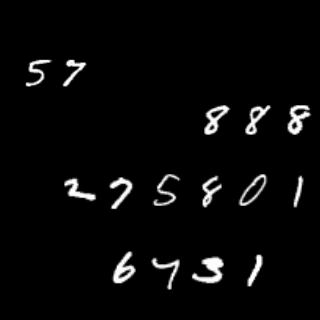 57
888
275801
6431